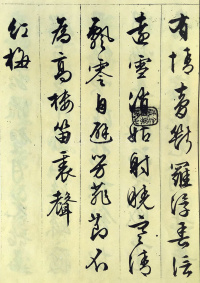 有情香斷羅浮春信
遠雪消姑射曉寒清
飄零自避芳菲節不
為高樓笛裏聲
紅梅